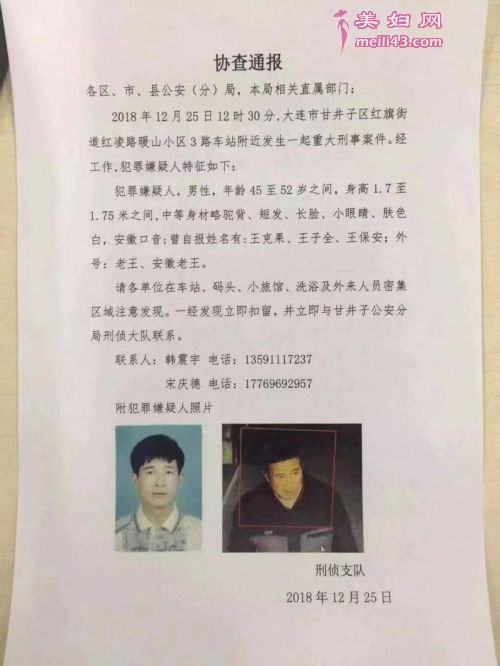 美妇网
meili43.com
协查通报
各区、市、县公安（分）局，本局相关直属部门：
2018年12月25日12时30分，大连市甘井子区红旗街
道红凌路暖山小区3路车站附近发生一起重大刑事案件。经
工作，犯罪嫌疑人特征如下：
犯罪嫌疑人，男性，年龄45至52岁之间，身高1.7至
1.75米之间，中等身材略驼背、短发、长脸、小眼睛、肤色
白，安徽口音；曾自报姓名有：王克果、王子全、王保安；外
号：老王、安徽老王。
请各单位在车站、码头、小旅馆、洗浴及外来人员密集
区域注意发现。一经发现立即扣留，并立即与甘井子公安分
局刑侦大队联系。
联系人：韩震宇 电话：13591117237
宋庆德 电话：17769692957
附犯罪嫌疑人照片
刑侦支队
2018年12月25日